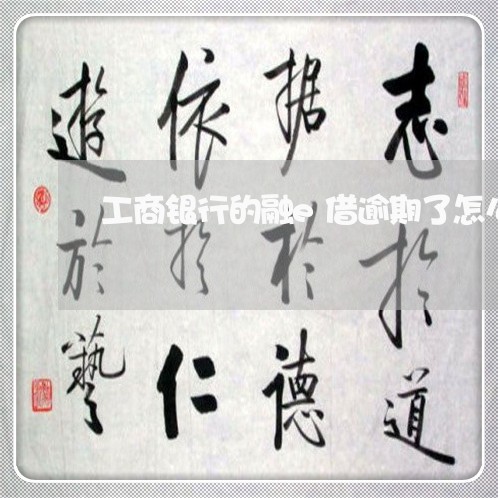 志於道
据於德
依於仁
遊於藝
工商银行的融e借逾期了怎